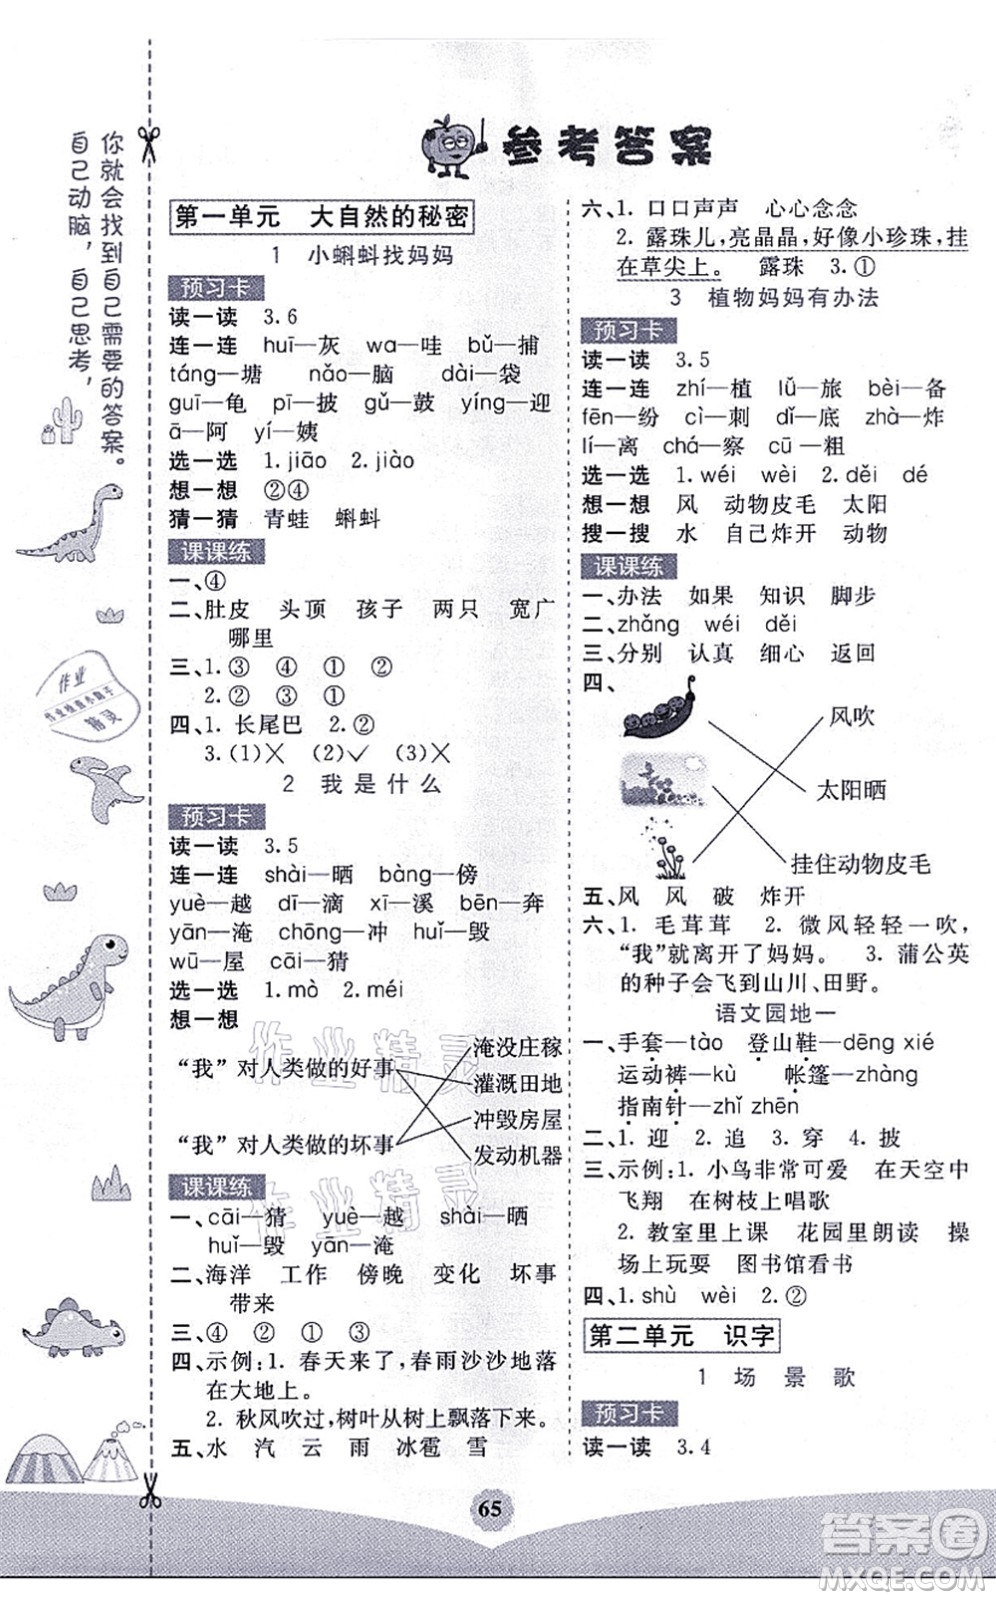 你就会找到自己需要的答案。
自己动脑，自己思考，
参考答案
第一单元 大自然的秘密
1 小蝌蚪找妈妈
预习卡
读一读 3.6
连一连 huī—灰 wa—哇 bǔ—捕
táng—塘 nǎo—脑 dài—袋
guī—龟 pī—披 gǔ—鼓 yíng—迎
ā—阿 yí—姨
选一选 1.jiāo 2.jiào
想一想 ②④
猜一猜 青蛙 蝌蚪
课课练
一、④
二、肚皮 头顶 孩子 两只 宽广
哪里
三、1.③ ④ ① ②
2.② ③ ①
四、1.长尾巴 2.②
3.(1)✕ (2)✓ (3)✕
2 我是什么
预习卡
读一读 3.5
连一连 shài—晒 bàng—傍
yuè—越 dī—滴 xī—溪 bēn—奔
yān—淹 chōng—冲 huǐ—毁
wū—屋 cāi—猜
选一选 1.mò 2.méi
想一想
淹没庄稼
“我”对人类做的好事
灌溉田地
冲毁房屋
“我”对人类做的坏事
发动机器
课课练
一、cāi—猜 yuè—越 shài—晒
huǐ—毁 yān—淹
二、海洋 工作 傍晚 变化 坏事
带来
三、④ ② ① ③
四、示例:1. 春天来了,春雨沙沙地落
在大地上。
2. 秋风吹过,树叶从树上飘落下来。
五、水 汽 云 雨 冰雹 雪
六、1. 口口声声 心心念念
2. 露珠儿,亮晶晶,好像小珍珠,挂
在草尖上。 露珠 3.①
3 植物妈妈有办法
预习卡
读一读 3.5
连一连 zhí—植 lǚ—旅 bèi—备
fēn—纷 cì—刺 dǐ—底 zhà—炸
lí—离 chá—察 cū—粗
选一选 1.wéi wèi 2.děi dé
想一想 风 动物皮毛 太阳
搜一搜 水 自己炸开 动物
课课练
一、办法 如果 知识 脚步
二、zhǎng wéi děi
三、分别 认真 细心 返回
四、
风吹
太阳晒
挂住动物皮毛
五、风 风 破 炸开
六、1. 毛茸茸 2. 微风轻轻一吹,
“我”就离开了妈妈。 3. 蒲公英
的种子会飞到山川、田野。
语文园地一
一、手套—tào 登山鞋—dēng xié
运动裤—kù 帐篷—zhàng
指南针—zhǐ zhēn
二、1. 迎 2. 追 3. 穿 4. 披
三、示例:1. 小鸟非常可爱 在天空中
飞翔 在树枝上唱歌
2. 教室里上课 花园里朗读 操
场上玩耍 图书馆看书
四、1.shù wèi 2.②
第二单元 识字
1 场景歌
预习卡
读一读 3.4
65
作业
作业检查小助手
精灵
作业精灵
作业精灵
答案圈
MXQE.COM